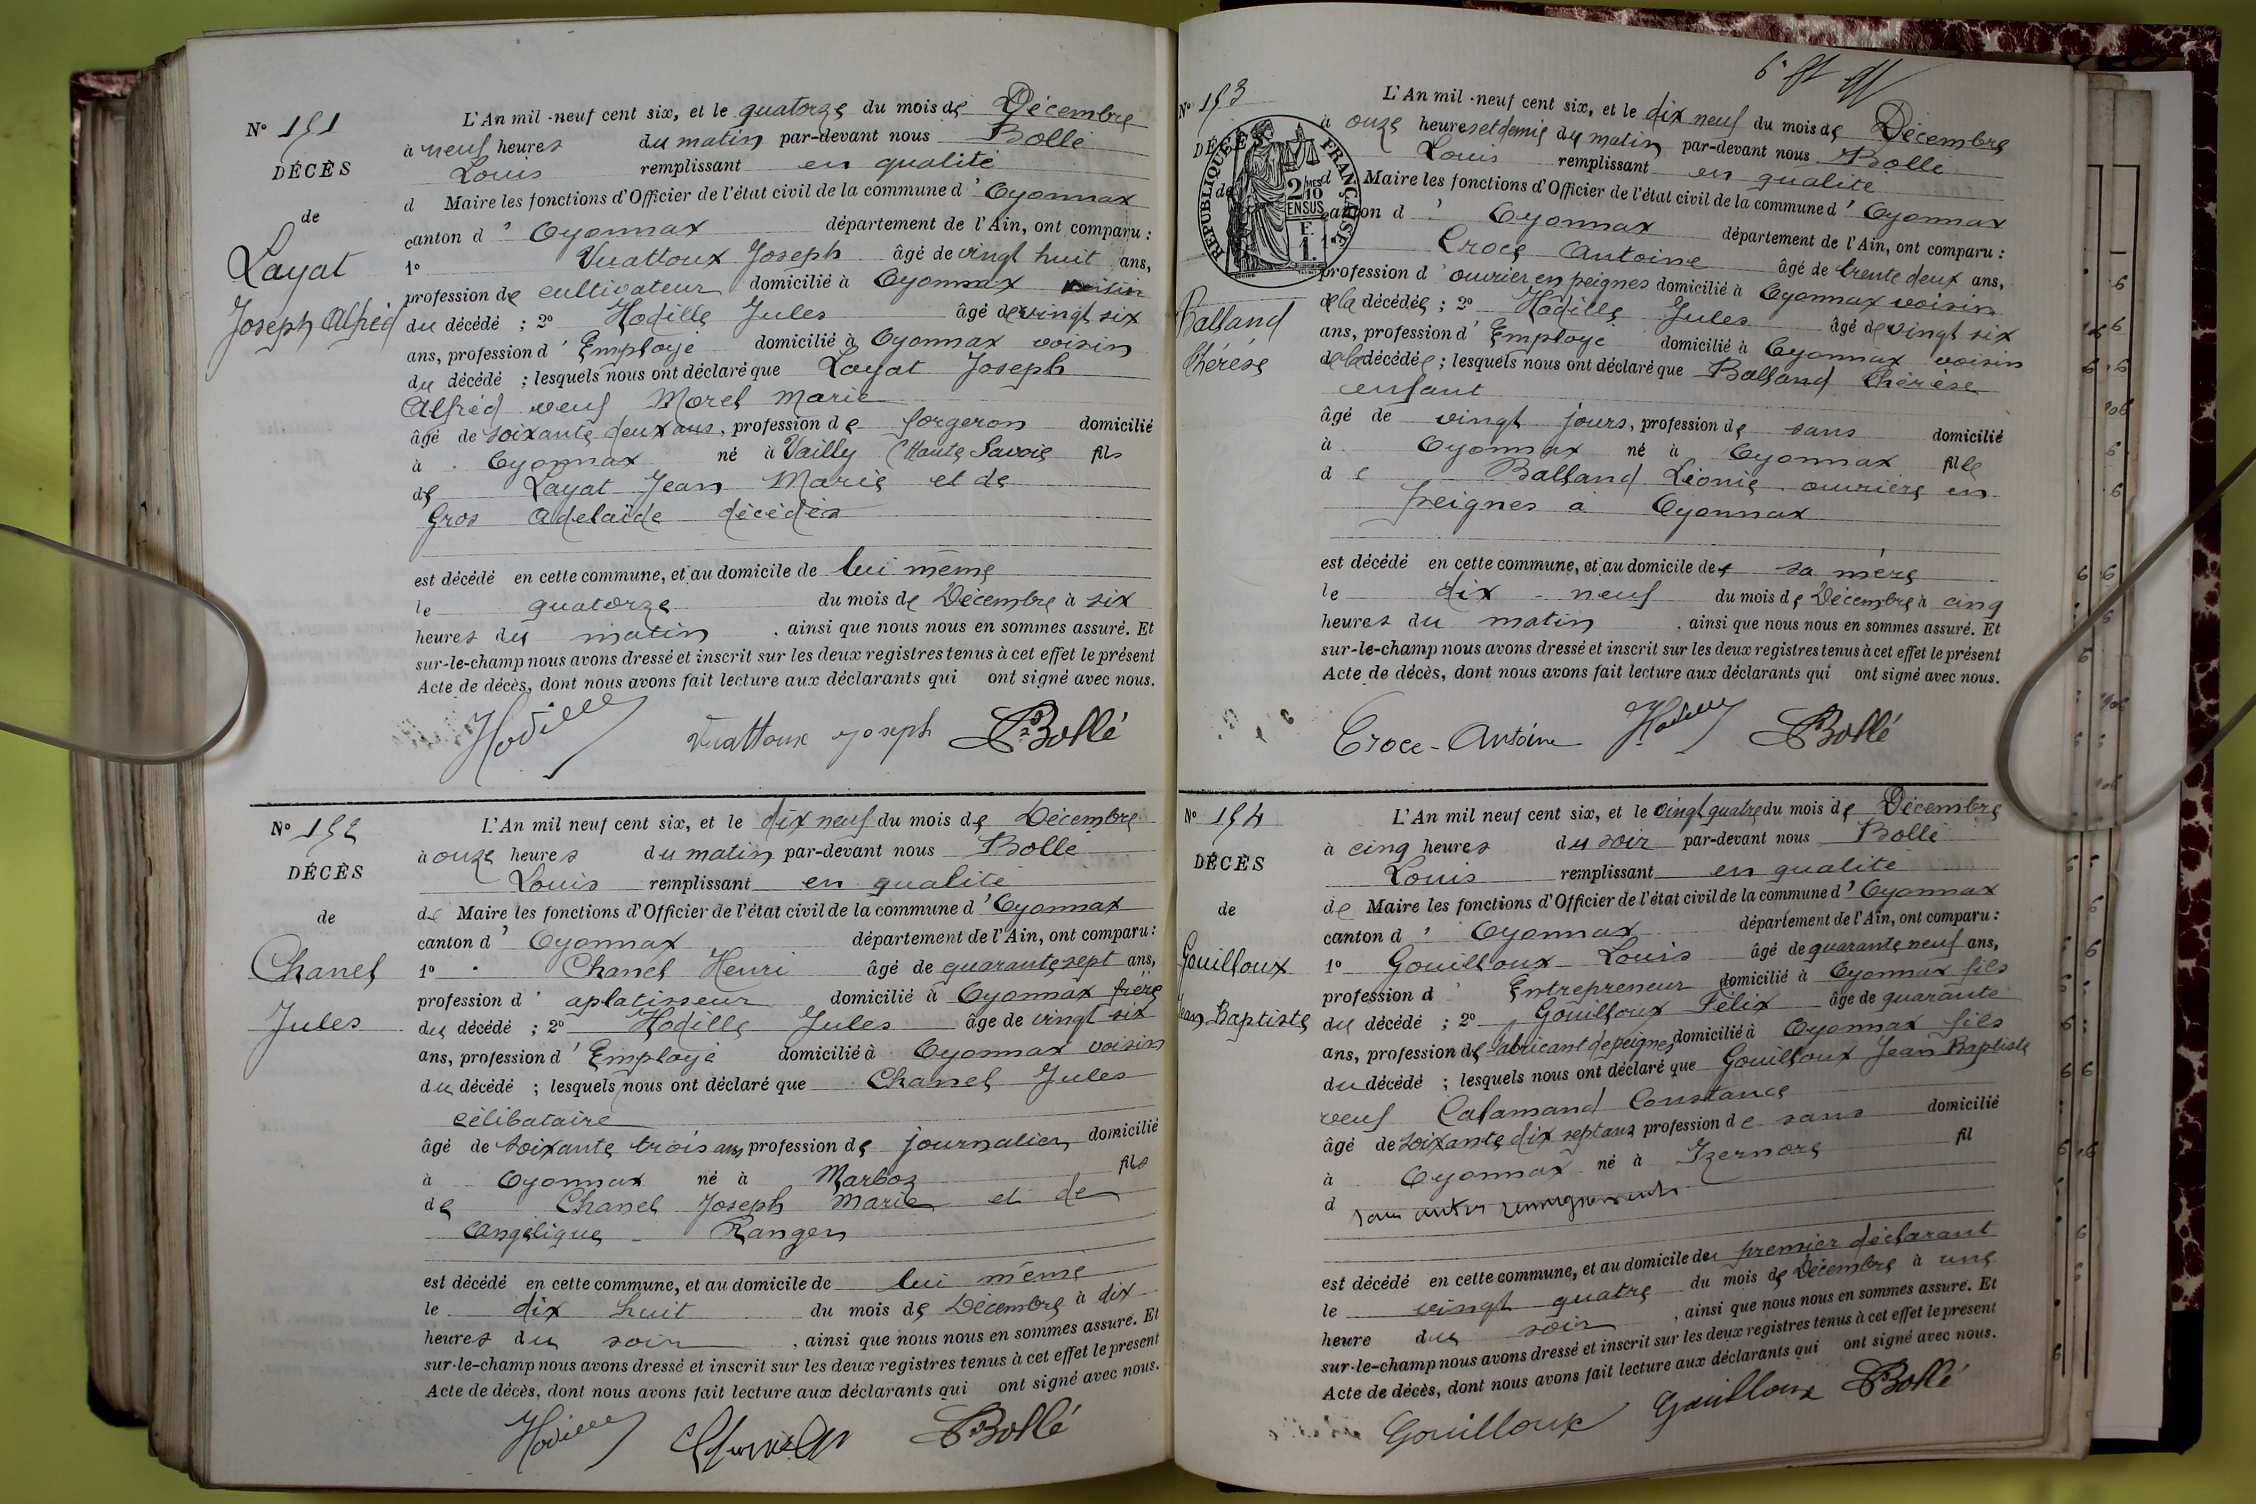 N° 151
DÉCÈS
de
Layat
Joseph Alfred
L'An mil-neuf cent six, et le quatorze du mois de Décembre
à neuf heures du matin par-devant nous Bollé
Louis remplissant en qualité
d Maire les fonctions d'Officier de l'état civil de la commune d'Oyonnax
canton d'Oyonnax département de l'Ain, ont comparu :
1° Vuattoux Joseph âgé de vingt huit ans,
profession de cultivateur domicilié à Oyonnax voisin
du décédé ; 2° Hodille Jules âgé de vingt six
ans, profession d'Employé domicilié à Oyonnax voisin
du décédé ; lesquels nous ont déclaré que Layat Joseph
Alfred veuf Morel Marie
âgé de soixante deux ans, profession de forgeron domicilié
à Oyonnax né à Vailly (Haute Savoie fils
de Layat Jean Marie et de
Gros Adelaïde décédés
est décédé en cette commune, et au domicile de lui même
le quatorze du mois de Décembre à six
heures du matin, ainsi que nous nous en sommes assuré. Et
sur-le-champ nous avons dressé et inscrit sur les deux registres tenus à cet effet le présent
Acte de décès, dont nous avons fait lecture aux déclarants qui ont signé avec nous.
Hodille Vuattoux Joseph Bollé
N° 152
DÉCÈS
de
Chanel
Jules
L'An mil neuf cent six, et le dix neuf du mois de Décembre
à onze heures du matin par-devant nous Bollé
Louis remplissant en qualité
de Maire les fonctions d'Officier de l'état civil de la commune d'Oyonnax
canton d'Oyonnax département de l'Ain, ont comparu :
1° Chanel Henri âgé de quarante sept ans,
profession d'aplatisseur domicilié à Oyonnax frère
du décédé ; 2° Hodille Jules âgé de vingt six
ans, profession d'Employé domicilié à Oyonnax voisin
du décédé ; lesquels nous ont déclaré que Chanel Jules
célibataire
âgé de soixante trois ans profession de journalier domicilié
à Oyonnax né à Marboz fils
de Chanel Joseph Marie et de
Angélique Ranger
est décédé en cette commune, et au domicile de lui même
le dix huit du mois de Décembre à dix
heures du soir, ainsi que nous nous en sommes assuré. Et
sur-le-champ nous avons dressé et inscrit sur les deux registres tenus à cet effet le présent
Acte de décès, dont nous avons fait lecture aux déclarants qui ont signé avec nous.
Hodille Bollé
N° 153
DÉCÈS
de
RÉPUBLIQUE FRANÇAISE
2/10 MES EN SUS
Balland
Thérèse
L'An mil-neuf cent six, et le dix neuf du mois de Décembre
à onze heures et demie du matin par-devant nous Bollé
Louis remplissant en qualité
d Maire les fonctions d'Officier de l'état civil de la commune d'Oyonnax
canton d'Oyonnax département de l'Ain, ont comparu :
Croce Antoine âgé de trente deux ans,
profession d'ouvrier en peignes domicilié à Oyonnax voisin
de la décédée ; 2° Hodille Jules âgé de vingt six
ans, profession d'Employé domicilié à Oyonnax voisin
de la décédée ; lesquels nous ont déclaré que Balland Thérèse
enfant
âgé de vingt jours, profession de sans domicilié
à Oyonnax né à Oyonnax fille
de Balland Léonie ouvrière en
peignes à Oyonnax
est décédé en cette commune, et au domicile de sa mère
le dix-neuf du mois de Décembre à cinq
heures du matin, ainsi que nous nous en sommes assuré. Et
sur-le-champ nous avons dressé et inscrit sur les deux registres tenus à cet effet le présent
Acte de décès, dont nous avons fait lecture aux déclarants qui ont signé avec nous.
Croce-Antoine Hodille Bollé
N° 154
DÉCÈS
de
Gouilloux
Jean Baptiste
L'An mil neuf cent six, et le vingt quatre du mois de Décembre
à cinq heures du soir par-devant nous Bollé
Louis remplissant en qualité
de Maire les fonctions d'Officier de l'état civil de la commune d'Oyonnax
canton d'Oyonnax département de l'Ain, ont comparu :
1° Gouilloux Louis âgé de quarante neuf ans,
profession d'Entrepreneur domicilié à Oyonnax fils
du décédé ; 2° Gouilloux Félix âgé de quarante
ans, profession de fabricant de peignes domicilié à Oyonnax fils
du décédé ; lesquels nous ont déclaré que Gouilloux Jean Baptiste
veuf Calamand Constance
âgé de soixante dix sept ans profession de sans domicilié
à Oyonnax né à Izernore fil
d sans autres renseignements
est décédé en cette commune, et au domicile du premier déclarant
le vingt quatre du mois de Décembre à une
heure du soir, ainsi que nous nous en sommes assuré. Et
sur-le-champ nous avons dressé et inscrit sur les deux registres tenus à cet effet le présent
Acte de décès, dont nous avons fait lecture aux déclarants qui ont signé avec nous.
Gouilloux Gouilloux Bollé